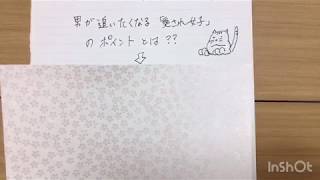 男が追いたくなる「愛され女子」
のポイントとは??
InShOt